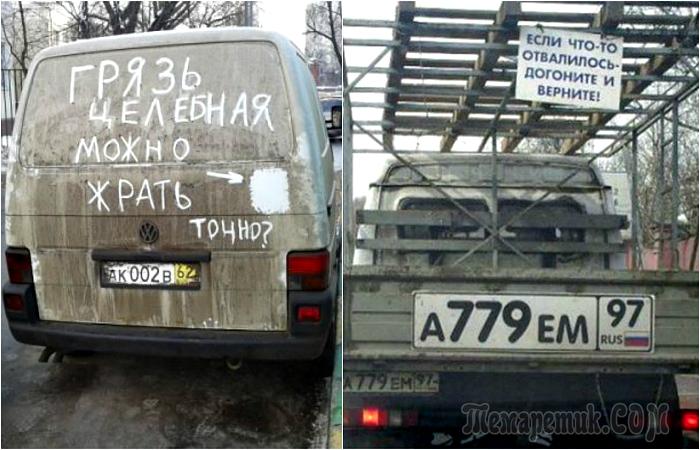 ГРЯЗЬ
ЦЕЛЕБНАЯ
МОЖНО
ЖРАТЬ
ТОЧНО?
АК002В 62
ЕСЛИ ЧТО-ТО
ОТВАЛИЛОСЬ-
ДОГОНИТЕ И
ВЕРНИТЕ!
А779ЕМ 97
RUS
А779ЕМ 97
Temapemuk.COM